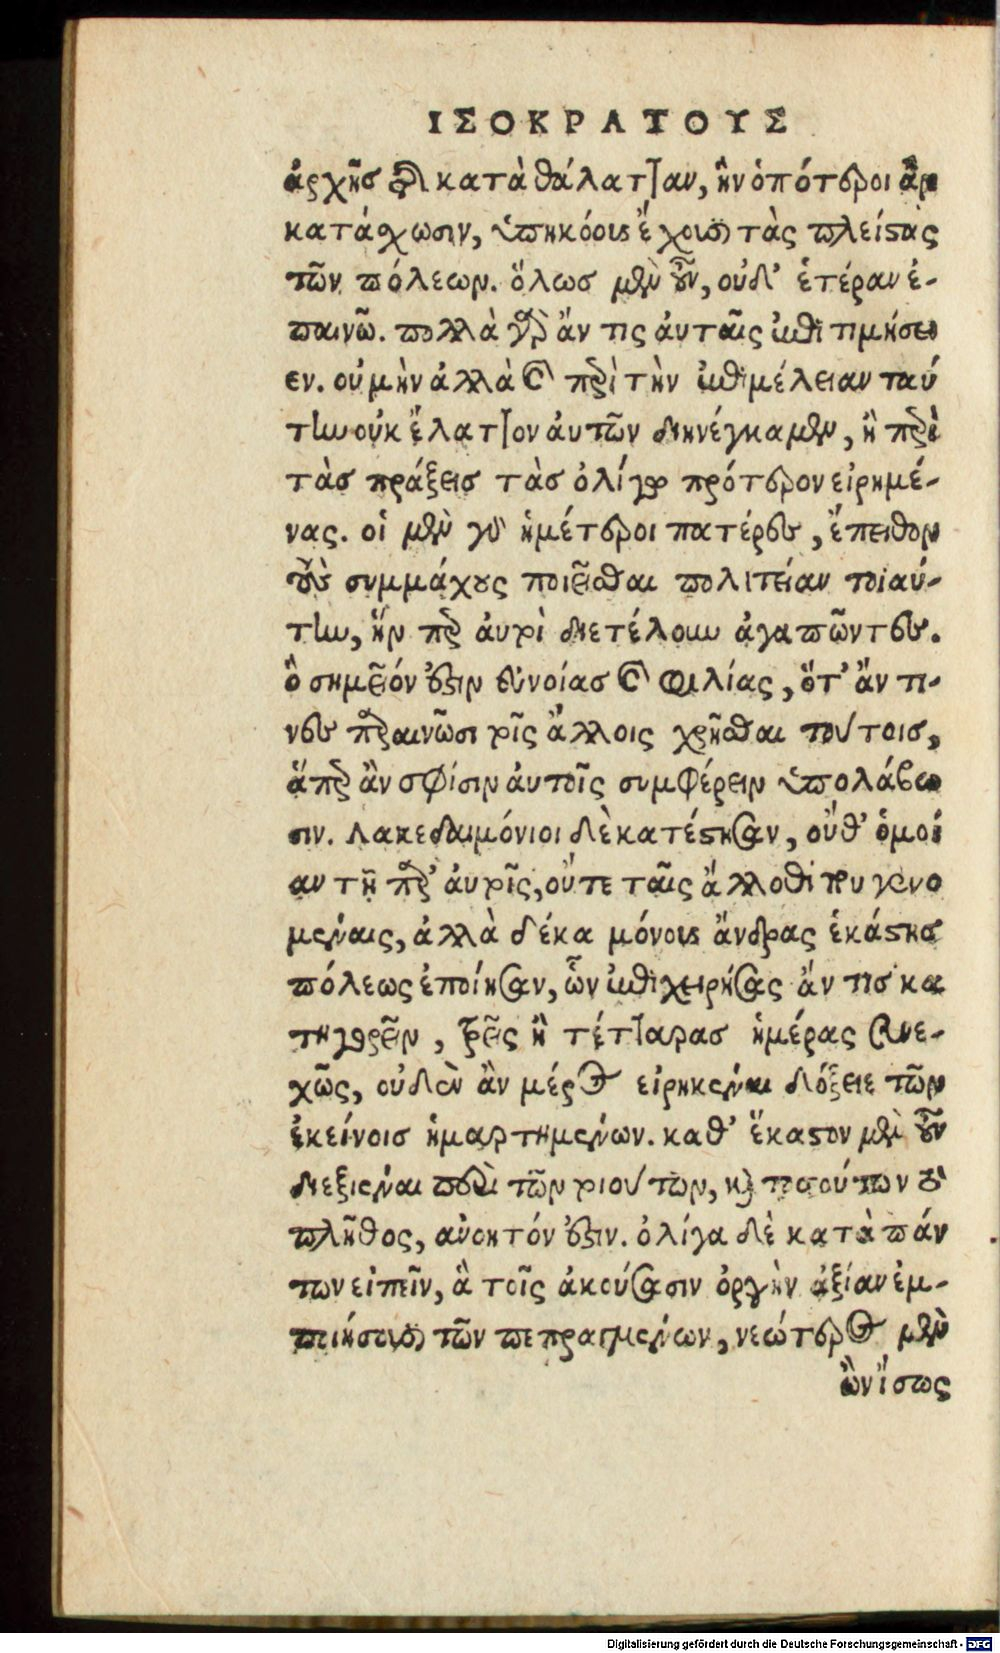 ΙΣΟΚΡΑΤΟΥΣ
ἀρχῆς τῆς κατὰ θάλατταν, ἣν ὁπότεροι ἂν
κατάσχωσιν, ὑπηκόους ἔχουσι τὰς πλείστας
τῶν πόλεων. ὅλως μὲν οὖν, οὐδ' ἑτέραν ἐ-
παινῶ. πολλὰ γὰρ ἄν τις αὐταῖς ἐπιτιμήσει
εν. οὐ μὴν ἀλλὰ καὶ περὶ τὴν ἐπιμέλειαν ταύ
την οὐκ ἔλαττον αὐτῶν διηνέγκαμεν, ἢ περὶ
τὰς πράξεις τὰς ὀλίγῳ πρότερον εἰρημέ-
νας. οἱ μὲν γὰρ ἡμέτεροι πατέρες, ἔπειθον
τοὺς συμμάχους ποιεῖσθαι πολιτείαν τοιαύ-
την, ἥνπερ αὐτοὶ διετέλουν ἀγαπῶντες.
ὃ σημεῖόν ἐστιν εὐνοίας καὶ φιλίας, ὅτ' ἄν τι-
νες παραινῶσι τοῖς ἄλλοις χρῆσθαι τούτοις,
ἅπερ ἂν σφίσιν αὐτοῖς συμφέρειν ὑπολάβω
σιν. Λακεδαιμόνιοι δὲ κατέστησαν, οὔθ' ὁμοί
αν τῇ παρ' αὐτοῖς, οὔτε ταῖς ἄλλοθί που γενο
μέναις, ἀλλὰ δέκα μόνους ἄνδρας ἑκάστης
πόλεως ἐποίησαν, ὧν ἐπιχειρήσας ἄν τις κα
τηγορεῖν, τρεῖς ἢ τέτταρας ἡμέρας συνε-
χῶς, οὐδὲν ἂν μέρος εἰρηκέναι δόξειε τῶν
ἐκείνοις ἡμαρτημένων. καθ' ἕκαστον μὲν οὖν
διεξιέναι περὶ τῶν τοιούτων, καὶ τοσούτων τὸ
πλῆθος, ἀνοητόν ἐστιν. ὀλίγα δὲ κατὰ πάν
των εἰπεῖν, ἃ τοῖς ἀκούσασιν ὀργὴν ἀξίαν ἐμ-
ποιήσουσι τῶν πεπραγμένων, νεώτερος μὲν
ὢν ἴσως
Digitalisierung gefördert durch die Deutsche Forschungsgemeinschaft - DFG